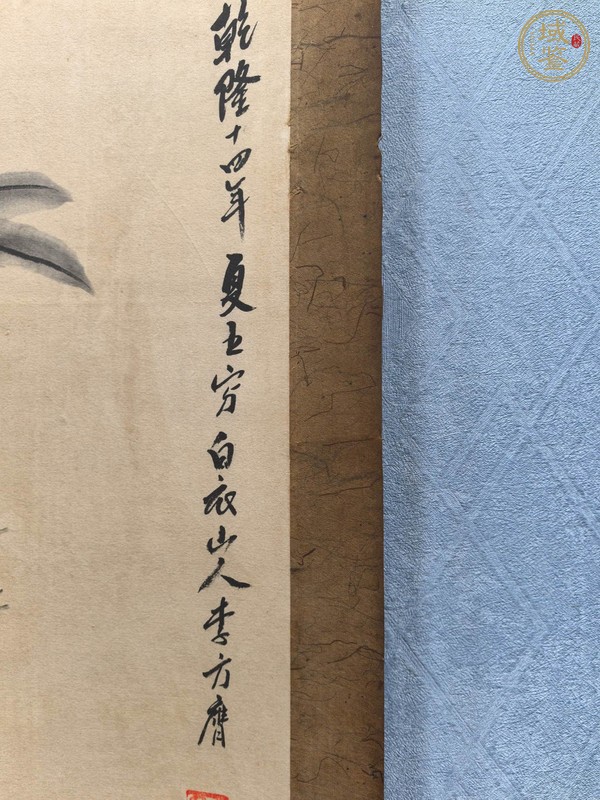 乾隆十四年夏五白衣山人李方膺
域鑒